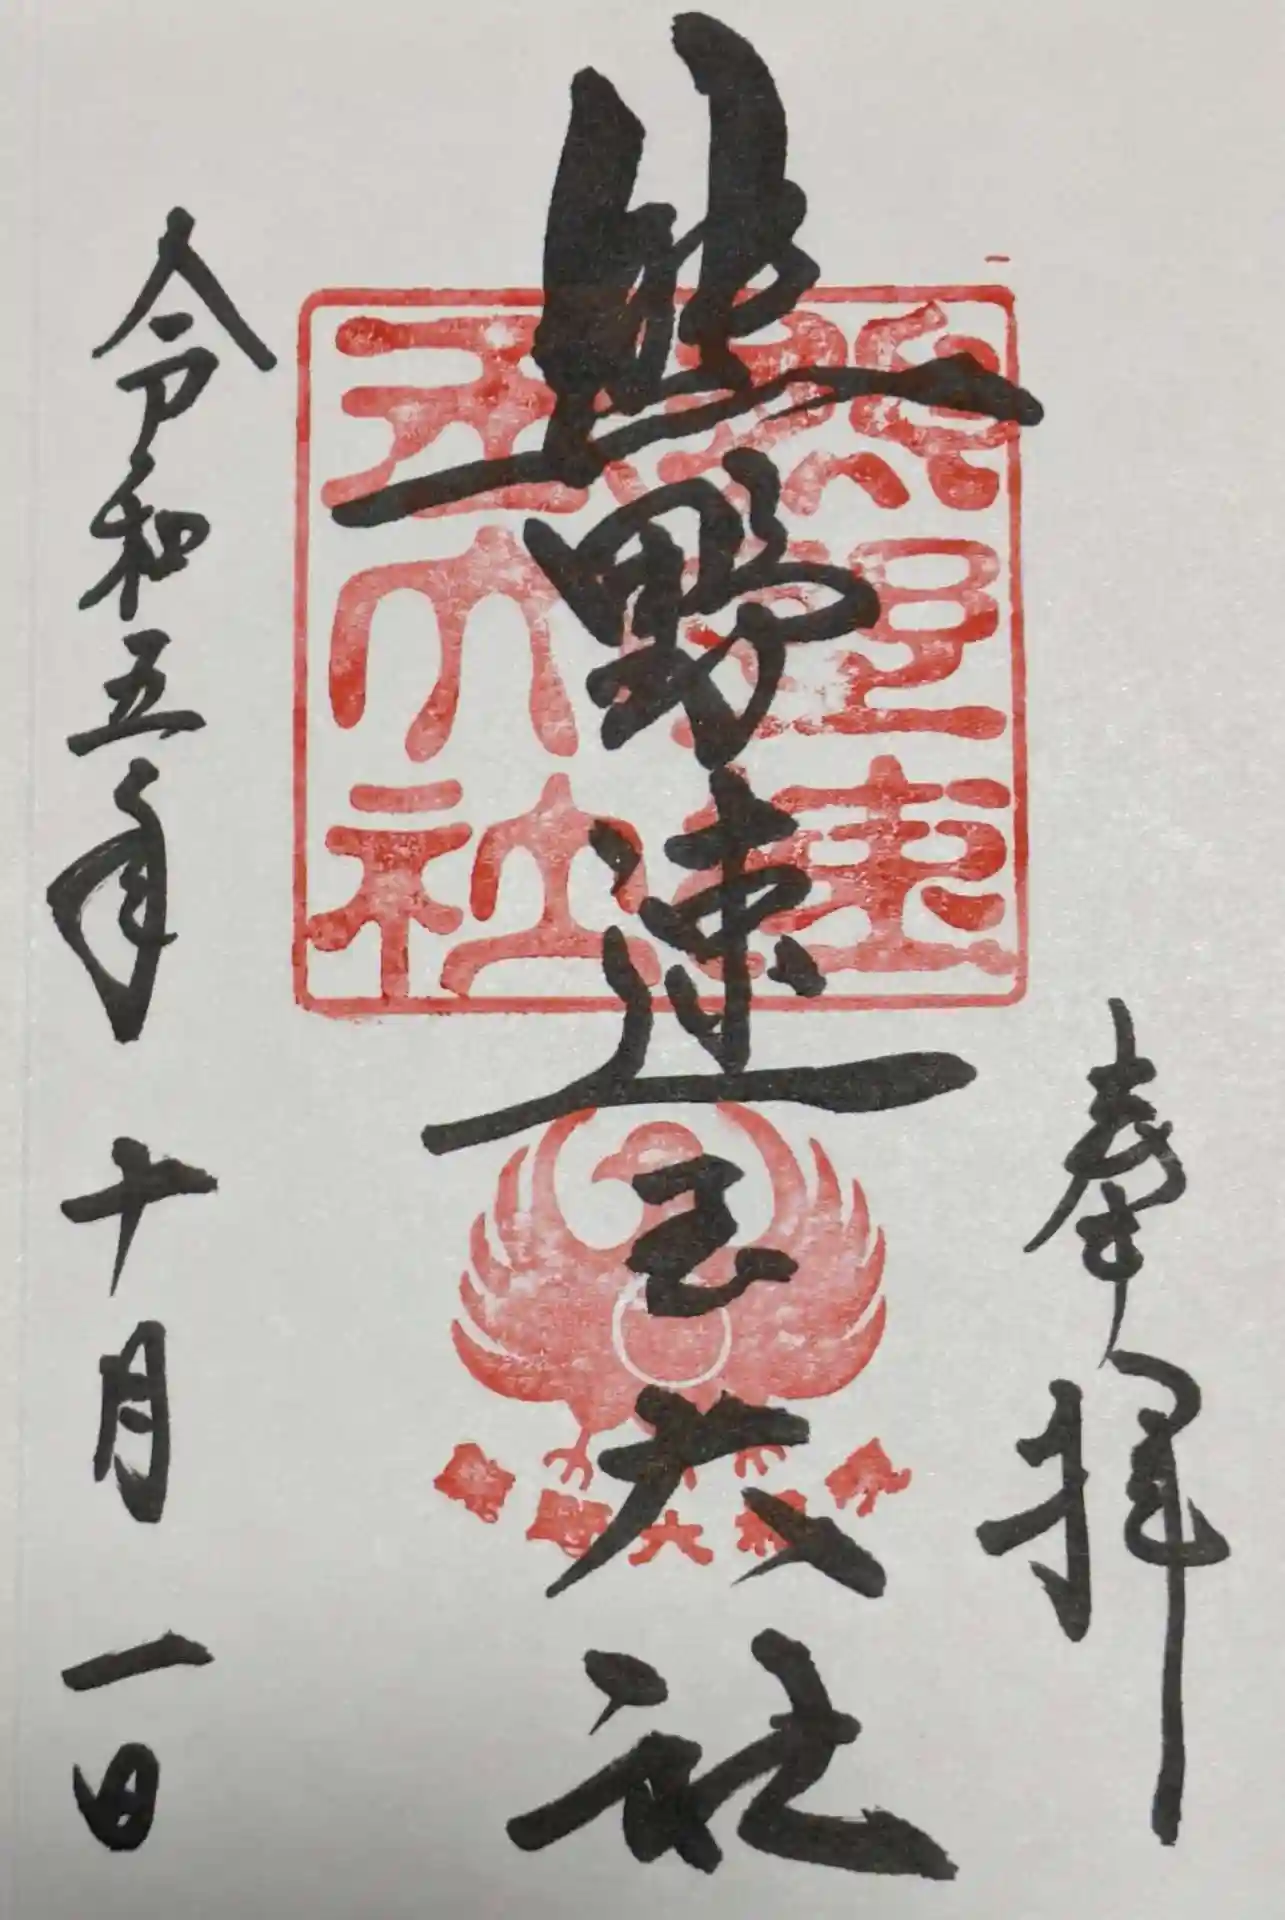 奉拝
熊野速玉大社
熊野速
玉大社
令和五年十月一日